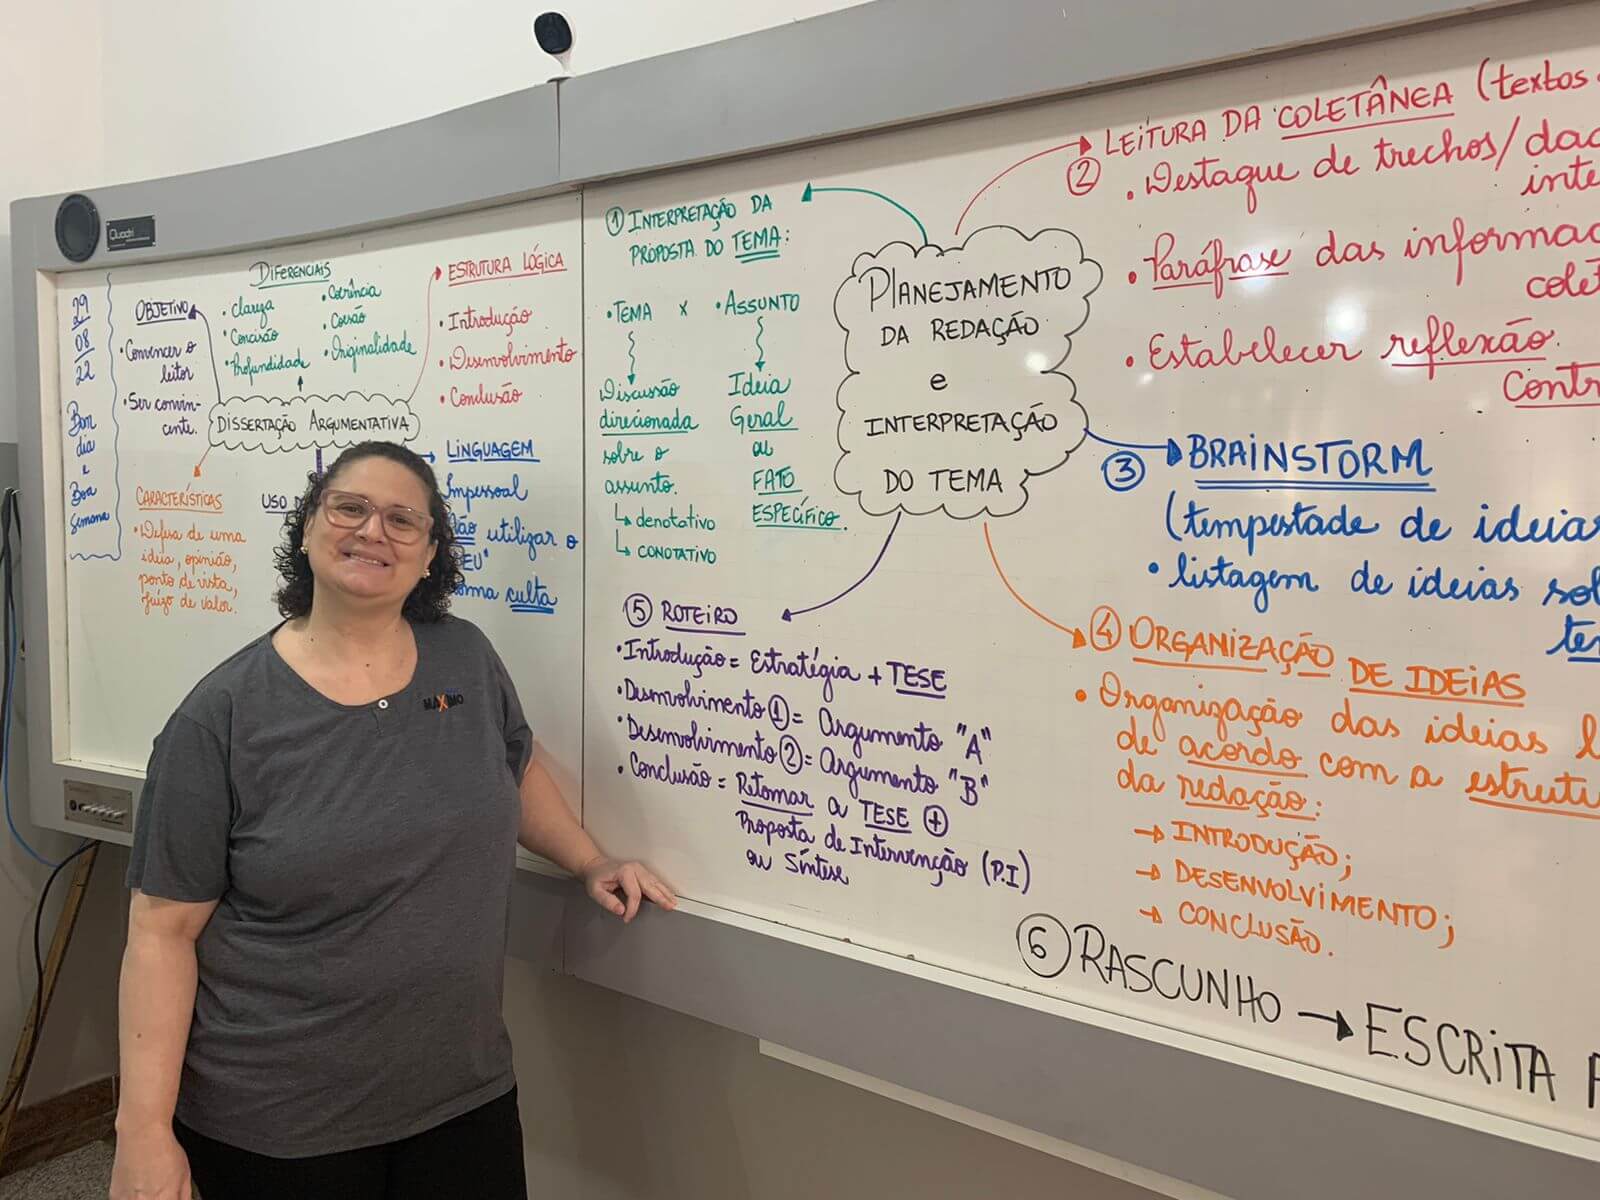 Quadri
29
08
22
Bom
dia
e
Boa
Semana
OBJETIVO
• Convencer o
leitor
• Ser convin-
cente.
DIFERENCIAIS
• Clareza
• Concisão
• Profundidade
• Coerência
• Coesão
• Originalidade
ESTRUTURA LÓGICA
• Introdução
• Desenvolvimento
• Conclusão
DISSERTAÇÃO ARGUMENTATIVA
CARACTERÍSTICAS
• Defesa de uma
ideia, opinião,
ponto de vista,
juízo de valor.
USO D
LINGUAGEM
Impessoal
Não utilizar o
"EU"
culta
MÁXIMO
PLANEJAMENTO
DA REDAÇÃO
e
INTERPRETAÇÃO
DO TEMA
① INTERPRETAÇÃO DA
PROPOSTA DO TEMA:
• TEMA x • ASSUNTO
Discussão
direcionada
sobre o
assunto.
↳ denotativo
↳ CONOTATIVO
Ideia
Geral
ou
FATO
ESPECÍFICO.
② LEITURA DA COLETÂNEA (textos
• Destaque de trechos/dad
inte
• Paráfrase das informaç
colet
• Estabelecer reflexão.
Contr
③ BRAINSTORM
(tempestade de ideias
• listagem de ideias sob
te
④ ORGANIZAÇÃO DE IDEIAS
• Organização das ideias l
de acordo com a estrutu
da redação:
→ INTRODUÇÃO;
→ DESENVOLVIMENTO;
→ CONCLUSÃO.
⑤ ROTEIRO
• Introdução = Estratégia + TESE
• Desenvolvimento ① = Argumento "A"
• Desenvolvimento ② = Argumento "B"
• Conclusão = Retomar a TESE ⊕
Proposta de Intervenção (P.I)
ou Síntese
⑥ RASCUNHO → ESCRITA